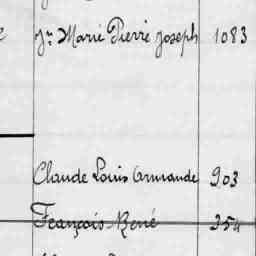 Jn Marie Pierre Joseph 1083
Claude Louis Armande 903
François René 254